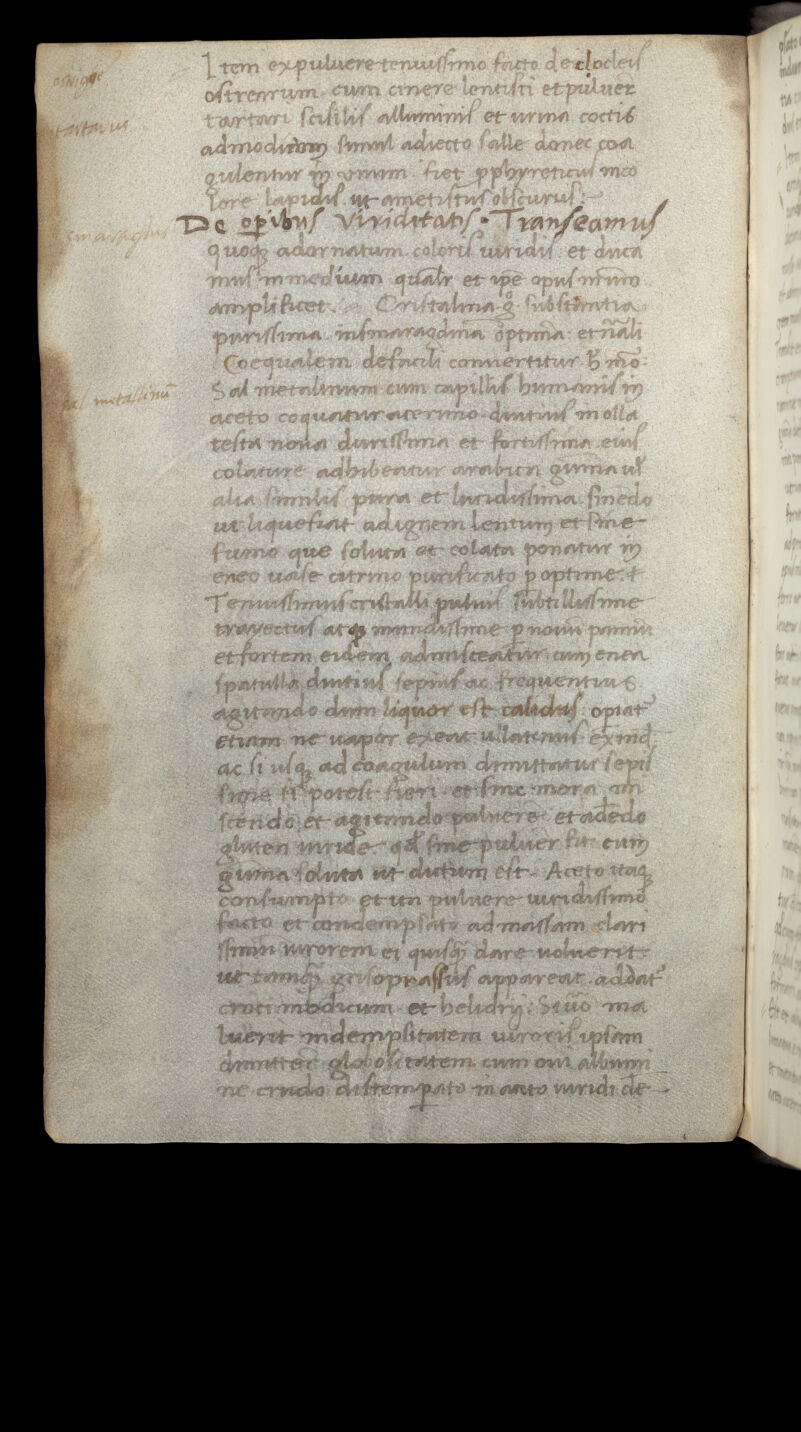 Item expuluere tenuissimo facto de clocleis
ostrearum. cum cinere lentisci et puluer̄
tartari scisilis alluminis et urina coctis
ostrigge
tartarus
ad modicum simul adiecto salle donec coa
gulentur in unum. fiet p̱phyreticus inco
lore lapidis ut ametistus obscurus.
De op̱ibus Viriditatis. Transeamus
smaragdus
quoq̱ adornatum coloris uiridis. et duca
mus in medium qualr̄ et ip̄e opus nr̄m̄
amplificet. Cristalina g° substantia
purissima. insmaragdina optima et nāli
Coequalem defacili conuertitur. h̄ mō:
Sal metalinum cum capillis humanis in
sal metallinū
aceto coquatur acerimo diutius in olla
testa noua durissima et fortissima. eius
colature adhibeatur arabica gūma ul̄
alia similis pura et lucidissima. sinedo
ut liquefiat ad ignem lentum et sine
fumo que soluta et colata ponatur in
eneo uase citrino purificato p̱optime. &
Tenuissimus cristalli puluis subtillissime
trayectus atq̱ mundissime p̱ nouū pannū
et fortem eidem admisceatur. cum enea
spatulla diutius sepius ac frequentius
agitando dum liquor est calidus. op̱iat̄
etiam ne uapor exeat ullatenus. exind̄
ac si usq̱ ad coagulum dimittatur sepis
sime si potest fieri. et sine mora mi
scendo et agitando puluere. et addēdo
gluten uiride. qd̄ sine puluer̄ fit cum
gūma soluta ut dictum est. Aceto itaq̱
consumpto et ita puluere uiridissimo
facto et condempsato ad massam clari
ssimū uirorem ei quisq̄ dare uoluerit
ut tamq̄ grisoprassus appareat. addat̄
croci modicum et helidrij. Siuō ma
luerit indempsitatem uiroris ipsam
dimitter̄ globositatem cum oui albumi
ne crudo distemp̱ato in aceto uiridi de